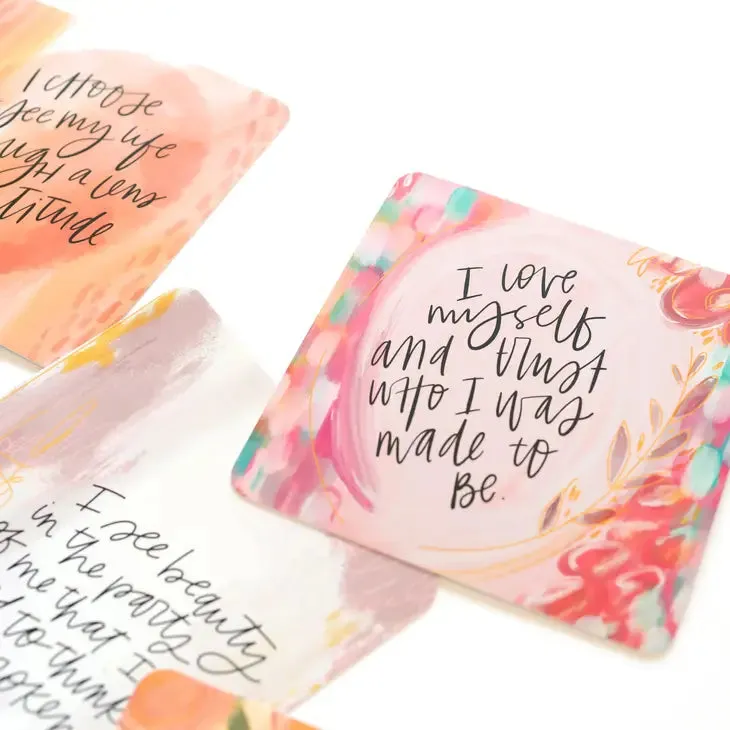 I choose
see my life
a lens
I love
myself
and trust
who I was
made to
Be.
I see beauty
in the parts
of me that I
to think